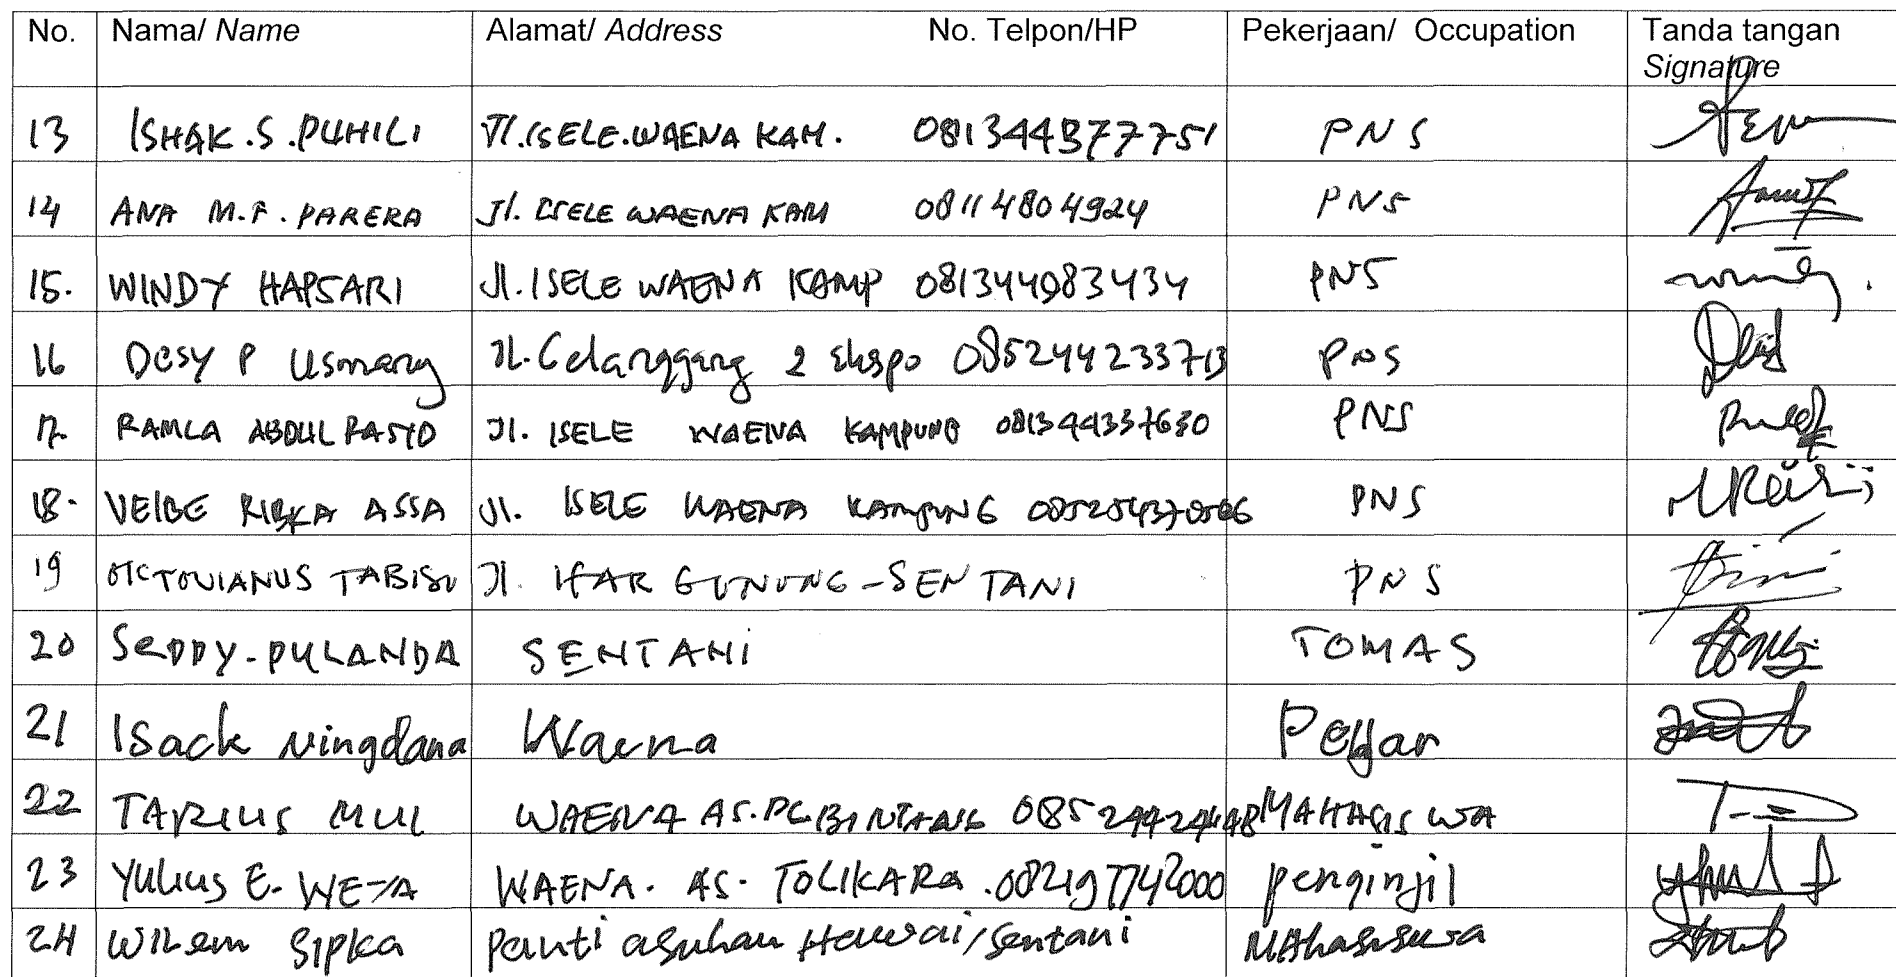 No. Nama/ Name Alamat/ Address No. Telpon/HP Pekerjaan/ Occupation Tanda tangan
Signature
13 ISHAK.S.PUHILI Jl.ISELE.WAENA KAM. 081344377751 PNS
14 ANA M.F. PARERA Jl. ISELE WAENA KAM 08114804924 PNS
15. WINDY HAPSARI Jl. ISELE WAENA KAMP 081344983434 PNS
16 Desy P Usmany Jl. Gelanggang 2 Ekspo 085244233713 PNS
17. RAMLA ABDUL RASYID Jl. ISELE WAENA KAMPUNG 081344337630 PNS
18. VEIBE RIBKA ASSA Jl. ISELE WAENA KAMPUNG PNS
19 OCTOVIANUS TABISU Jl. IFAR GUNUNG-SENTANI PNS
20 SEDDY-PULANDA SENTANI TOMAS
21 Isack Ningdana Waena
22 TARIUS MUL WAENA AS.PG.BINTANG MAHASISWA
23 YULIUS E. WEYA WAENA. AS. TOLIKARA .082197742000 penginjil
24 Wilem Sipka Panti asuhan Hawai/Sentani MAhasiswa